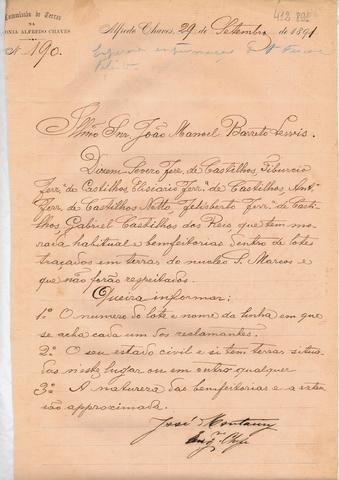 Commissão de Terras
NA
COLONIA ALFREDO CHAVES
N. 190.
412 895
Alfredo Chaves, 29 de Setembro de 1891
Illmo Snr. João Manoel Barreto Lessis.
Dizem Severo Ferr.ª de Castilhos Tiburcio
Ferr.ª de Castilhos Elisiario Ferr.ª de Castilhos Ant.º
Ferr.ª de Castilhos Netto, Felisberto Ferr.ª de Casti-
lhos, Gabriel Castilhos dos Reis, que tem mo-
rada habitual e bemfeitorias dentro de lotes
traçados em terras do nucleo S. Marcos e
que não forão respeitados.
Queira informar:
1.º O numero do lote e nome da linha em que
se acha cada um dos reclamantes.
2.º O seu estado civil e si tem terras situa-
das neste lugar ou em outro qualquer
3.º A natureza das bemfeitorias e a exten-
são approximada.
José Montaury
Eng.º Chefe